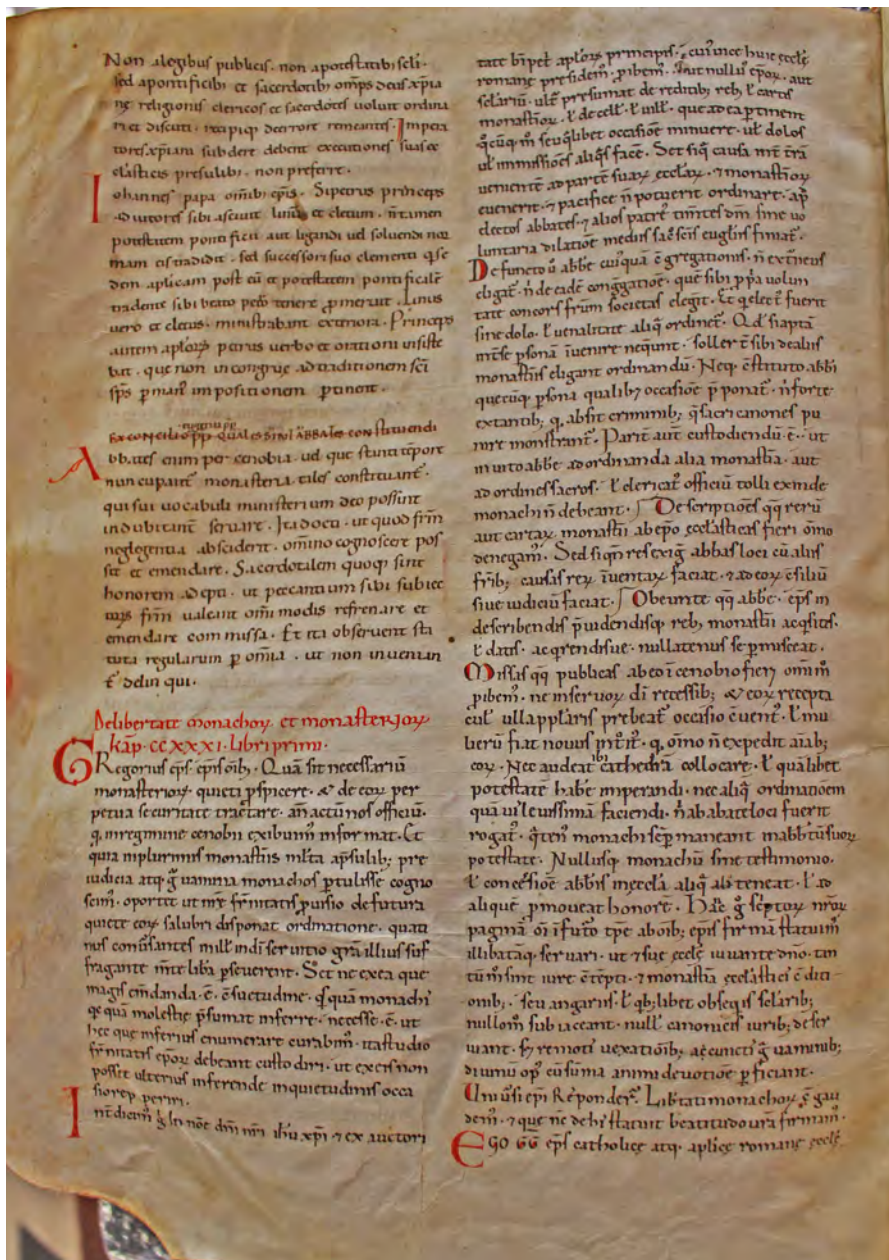 Non alegibus publicis. non apotestatibꝰ scłi.
sed apontificibꝰ et sacerdotibꝰ om̄ps deus xp̄ia
nę religionis clericos et sacerdotes voluit ordina
ri et discuti.
tores xp̄iani subdere debent executiones suas ec
clesiasticis presulibꝰ. non preferre.
Iohannes papa om̄ibꝰ ep̄is. Sipetrus princeps
adiutores sibi asciuit linū et cletum. n̄ tamen
potestatem pontificii aut ligandi uel soluendi nor
mam eis tradidit. sed successori suo clementi q̄ se
dem aplicam post eū et potestatem pontificalē
tradente sibi beato petro tenere ꝓmeruit. Linus
vero et cletus. ministrabant exteriora. Princeps
autem aplōꝝ petrus verbo et orationi insiste
bat. que non incongrue ad traditionem sc̄i
sp̄s ꝑ manū impositionem ꝑtinent.
EX CONCILIO QUALES SINT ABBATES constituendi
Abbates enim per cenobia. uel que stunti tēpore
nuncupant̄ monasteria. tales constituant̄.
qui sui vocabuli ministerium deo possint
indubitant̄ seruare. Ita docti. ut quod fr̄m
neglegentia absciderit. omnino cognoscere pos
sit et emendare. Sacerdotalem quoqꝫ sint
honorem adepti. ut peccantium sibi subiec
toꝝ fr̄m valeant om̄i modis refrenare et
emendare commissa. Et ita obseruent sta
tuta regularum ꝑ omīa. ut non inuenian
t̄ delinqui.
De libertate monachoꝝ et monasterioꝝ
kāp. ccxxxi. libri primi.
GRegorius ep̄s. ep̄is oībꝫ. Quā sit necessariū
monasterioꝝ quieti ꝓspicere. & de eoꝝ per
petua securitate tractare. an̄actū nos officiū.
q̨ in regimine cenobii exibuim̄ informat. Et
quia in plurimis monast̄iis ml̄ta ap̄sulibꝫ pre
iudicia atqꝫ g̊uamina monachos ꝑtulisse cogno
scim̄. oportet ut nr̄e fr̄nitatis ꝓuisio de futura
quiete eoꝝ salubri disponat ordinatione. quati
nus conūsantes in ill̄ in dī seruitio grā illius suf
fragante m̄te lib̄a ꝑseuerent. Set ne ex ea que
magis em̄danda .ē. c̄suetudine. q̄squā monachi
qc̨quā molestię p̄sumat inferre. necesse .ē. ut
hec que inferius enumerare curabim̄. ita studio
fr̄nitatis ep̄oꝝ debeant custodiri. ut ex eis non
possit ulterius inferende inquietudinis occa
sio rep̄periri.
Int̄dicim̄ g̊ in nōe dn̄i nr̄i ihū xp̄i ⁊ ex auctori
tate bī pet̄ aplōꝝ principis. c̄ cui uice huic ęccłę
romanę presidem̄ ꝓibem̄. Aut nullus ep̄oꝝ. aut
sclariū. ult̄ presumat de redditibꝫ rebꝫ ł cartis
monast̄ioꝝ. ł de cell̄. ł uill̄. que ad ea ꝑtinent
q̊cūqꝫ m̊ seu q̊libet occasiōe minuere. uł dolos
uł inmissiōes aliq̄s facē. Set siq̄ causa int̄ t̄rā
ueniente ad partē suaꝝ ęcclaꝝ. ⁊ monast̄ioꝝ
euenerit. ⁊ pacifice n̄ potuerit ordinare. ap̄
electos abbates. ⁊ alios patrē tim̄tes dm̄ sine uo
luntaria dilatiōe mediis sac̄scīs euḡliis finiat̄.
Defuncto ū abbē cuiꝰquā c̄gregationis. n̄ ext̄neus
eligat̄. n̄ de eadē cong̊gatiōe. quē sibi ꝓp̄a volun
tate concors fr̄um societas elegit. Et q̨ elect̄ fuerit
sine dolo. ł uenalitate aliq̊ ordinet̄. Qd̄ si aptā
int̄ se ꝑsonā īuenire neq̊unt. soller t̄ sibi de aliis
monast̄iis eligant ordinandū. Neqꝫ c̄stituto abbī
quęcūqꝫ ꝑsona qualibꝫ occasiōe p̄ponat̄. n̄ forte
extantibꝫ q̨ absit criminibꝫ q̨ sacri canones pu
nire monstrant̄. Parit̄ aut̄ custodiendū .ē. ut
inuito abbē ad ordinanda alia monast̄ia. aut
ad ordines sacros. ł clericat̄ officiū tolli exinde
monachi n̄ debeant. Descriptiōes qq̨ rerū
aut cartaꝝ monast̄ii ab ep̄o ęcclasticas fieri om̄o
denegam̄. Sed siq̄n̄ res exig̊ abbas loci cū aliis
fr̄ibꝫ causas reꝝ īuentaꝝ faciat. ⁊ ad eoꝝ c̄siliū
siue iudiciū faciat. Obeunte qq̨ abbē. ep̄s in
describendis p̄uidendisqꝫ rebꝫ monast̄ii acq̊sitis.
ł datis. acq̊rendisue. nullatenus se ꝑmisceat.
Missas qq̨ publicas ab eo ī cenobio fieꝝ om̄im̊
ꝓibem̄. ne in seruoꝝ dī recessibꝫ & eoꝝ recepta
cul̄. ulla ppłaris prebeat̄ occasio c̄uent̄. ł mu
lierū fiat nouus int̊it̄. q̨ om̄o n̄ expedit aīabꝫ
eoꝝ. Nec audeat ibi cathedrā collocare. ł quālibet
potestatē habē imperandi. nec aliq̄ ordinatiōem
quāuis leuissimā faciendi. n̄ ab abate loci fuerit
rogat̄. q̊ten̄ monachi sēp̄ maneant in abb̄tū suoꝝ
potestate. Nullusqꝫ monachū sine testimonio.
ł concessiōe abbīs in ęccl̄a aliq̊ abteneat. ł ad
aliquē ꝓmoueat honorē. Hāc g̊ sc̄ptoꝝ nr̄oꝝ
paginā oī ī futo t̄pe ab oībꝫ ep̄is firmā statuim̄
illibatāqꝫ seruari. ut ⁊ suę ęccłę iuuante dn̄o. tan
tūm̊ sint iure c̄tēpti. ⁊ monast̄ia ęcclastici c̄diti
onibꝫ. seu angariis. ł q̨bꝫlibet obseq̊is sclaribꝫ
nullom̊ subiaceant. null̄ canonicis iuribꝫ deser
uiant. s̨ remotis uexatiōibꝫ ac cunctis g̊uaminibꝫ
diuinū op̄ cū sūma animi deuotiōe ꝑficiant.
Uniūsi ep̄i Respondert̄. Lib̄tati monachoꝝ c̄gau
dem̄. ⁊ que n̄c de his statuit beatitudo ur̄a firmam̄.
EGO GG ep̄s catholicę atqꝫ aplicę romanę ęccłę